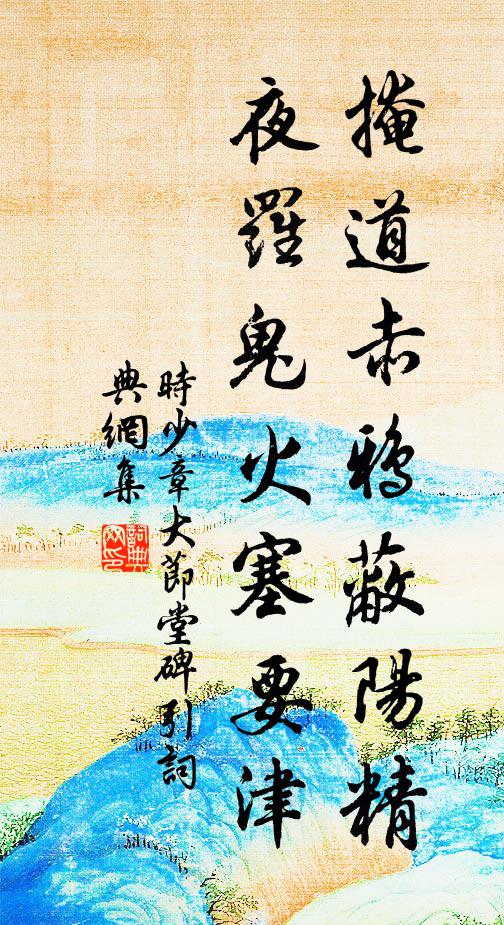 掩道赤鴉蔽陽精
夜羅鬼火塞要津
時少章大節堂碑引詞
典網集